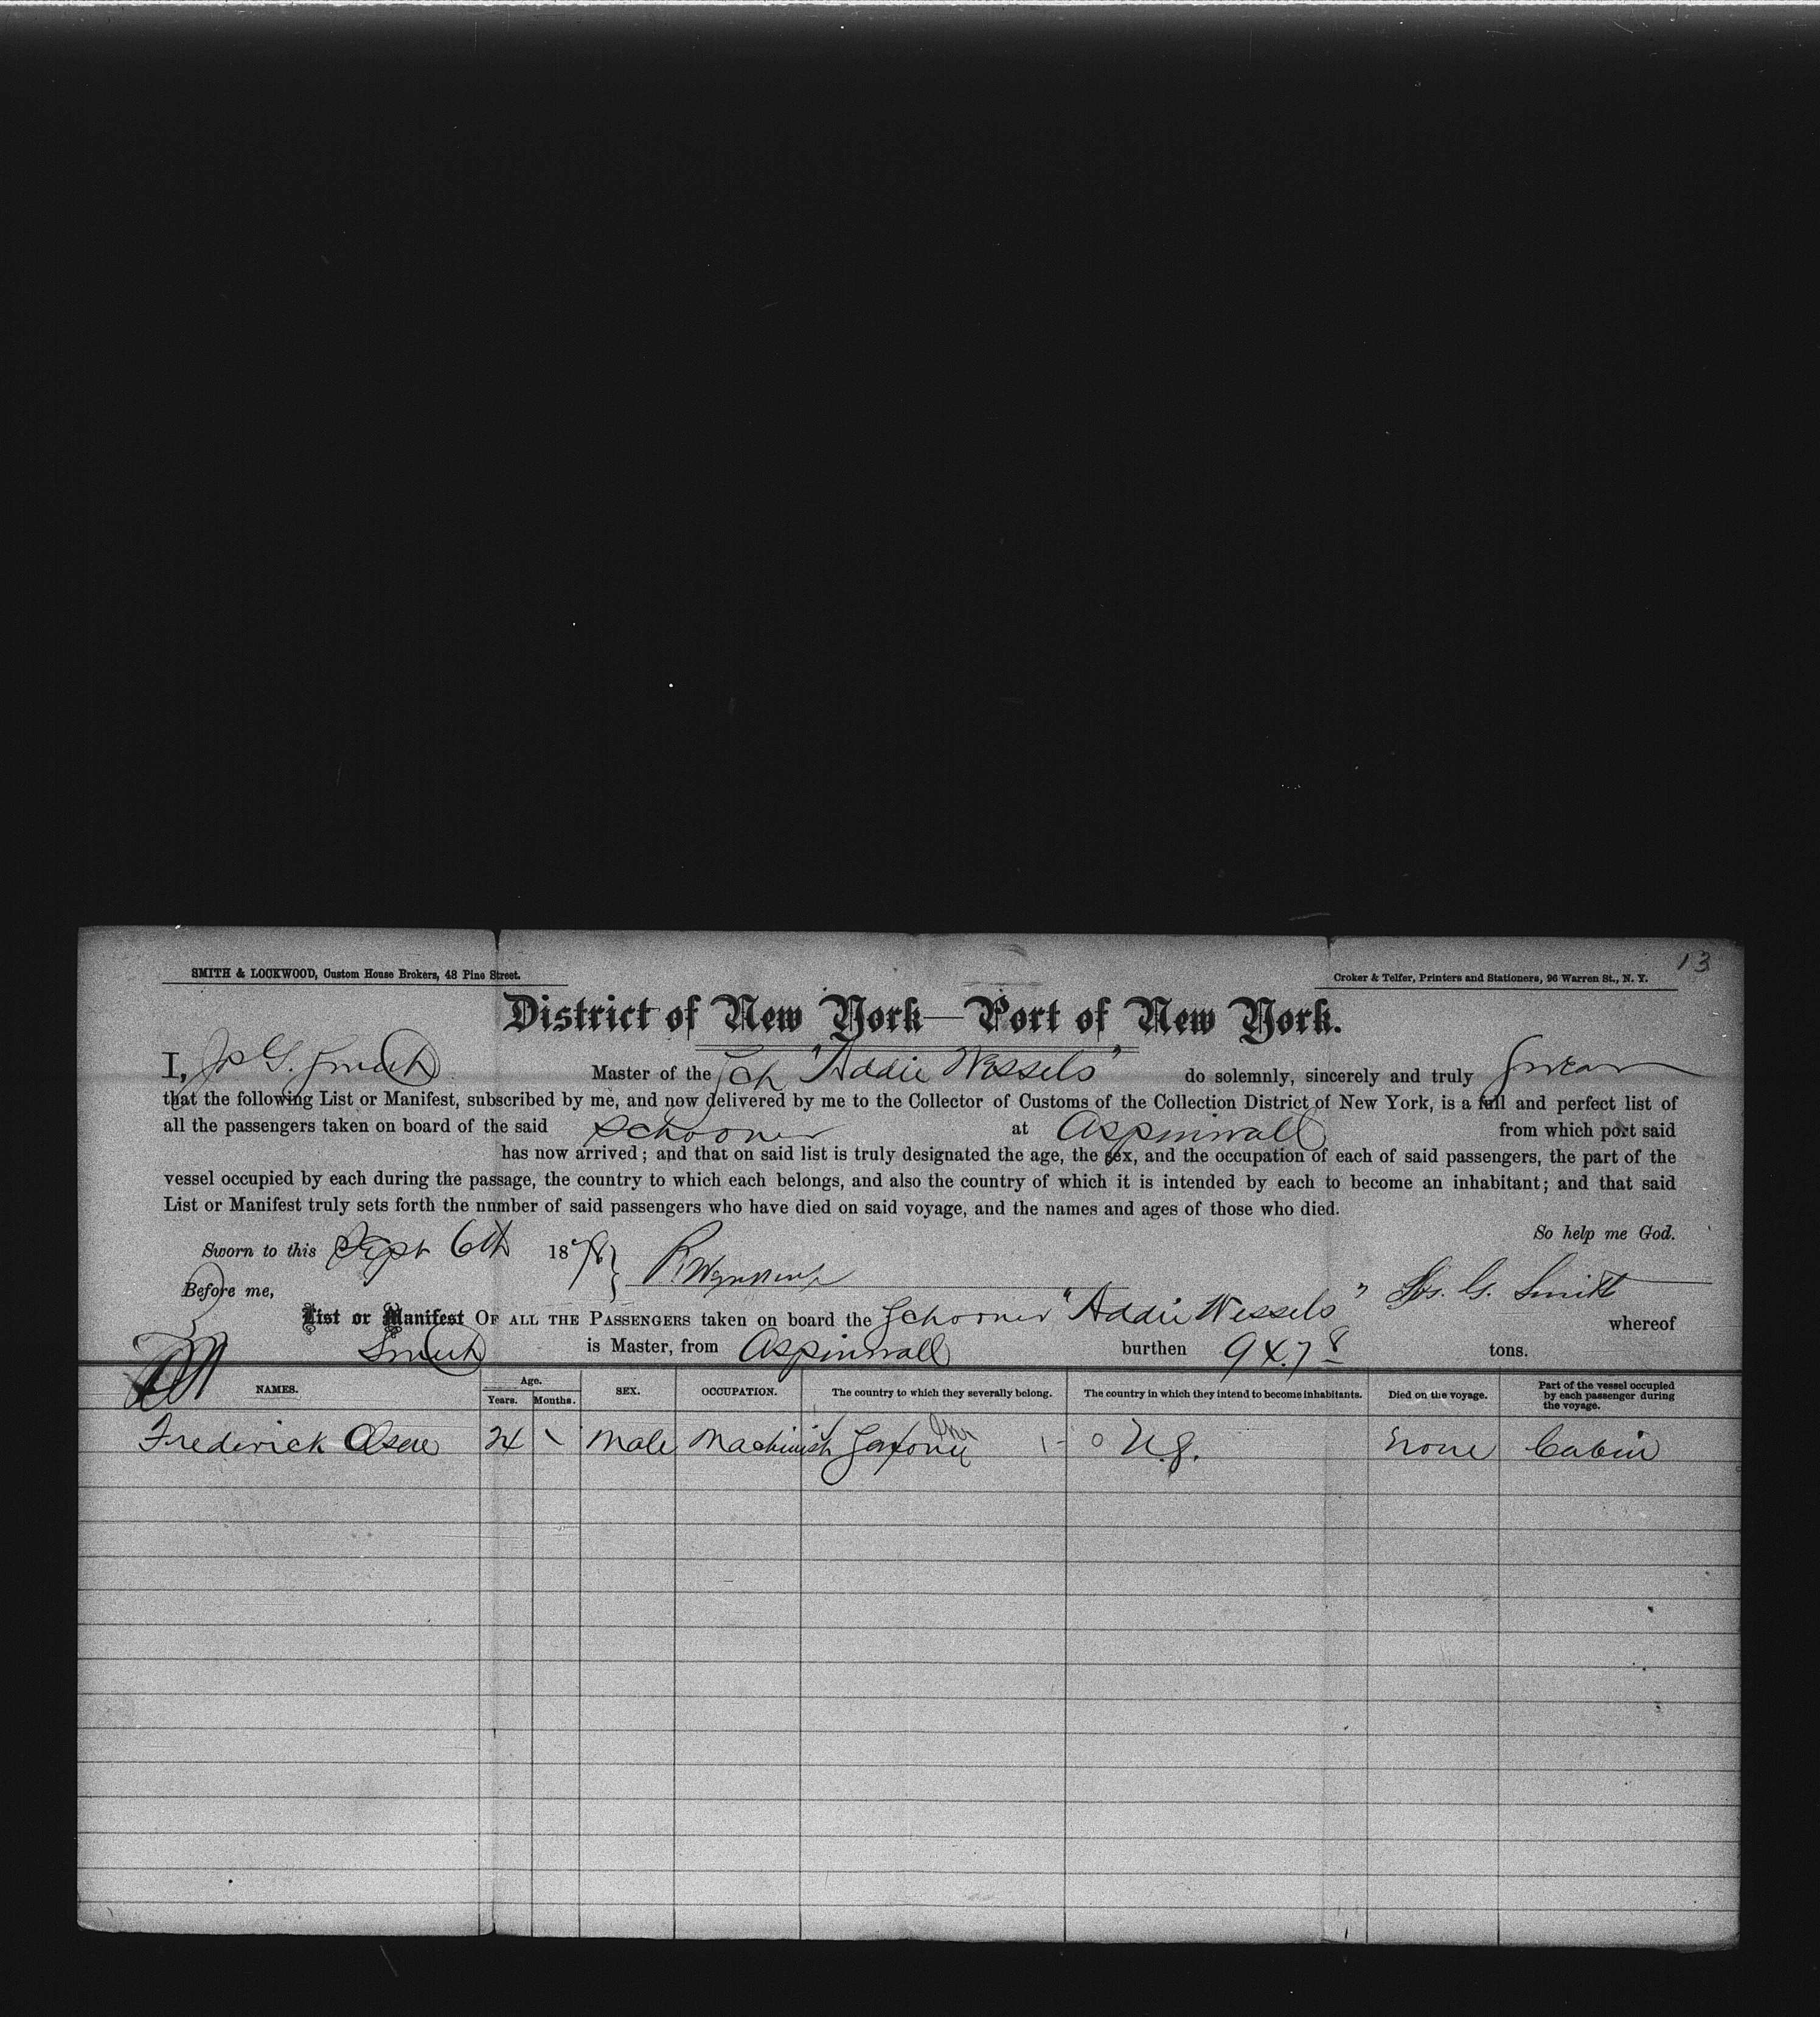 13
SMITH & LOCKWOOD, Custom House Brokers, 48 Pine Street.
Croker & Telfer, Printers and Stationers, 96 Warren St., N. Y.
District of New York—Port of New York.
I, Jos G. Smith Master of the Sch "Addie Wessels" do solemnly, sincerely and truly swear
that the following List or Manifest, subscribed by me, and now delivered by me to the Collector of Customs of the Collection District of New York, is a full and perfect list of
all the passengers taken on board of the said Schooner at Aspinwall from which port said
has now arrived; and that on said list is truly designated the age, the sex, and the occupation of each of said passengers, the part of the
vessel occupied by each during the passage, the country to which each belongs, and also the country of which it is intended by each to become an inhabitant; and that said
List or Manifest truly sets forth the number of said passengers who have died on said voyage, and the names and ages of those who died.
So help me God.
Sworn to this Sept 6th 1878
Before me,
Jos. G. Smith
List or Manifest OF ALL THE PASSENGERS taken on board the Schooner "Addie Wessels" whereof
Smith is Master, from Aspinwall burthen tons.
NAMES. Age. Years. Months. SEX. OCCUPATION. The country to which they severally belong. The country in which they intend to become inhabitants. Died on the voyage. Part of the vessel occupied by each passenger during the voyage.
Frederick 24 Male Machinist Saxony U.S. None Cabin